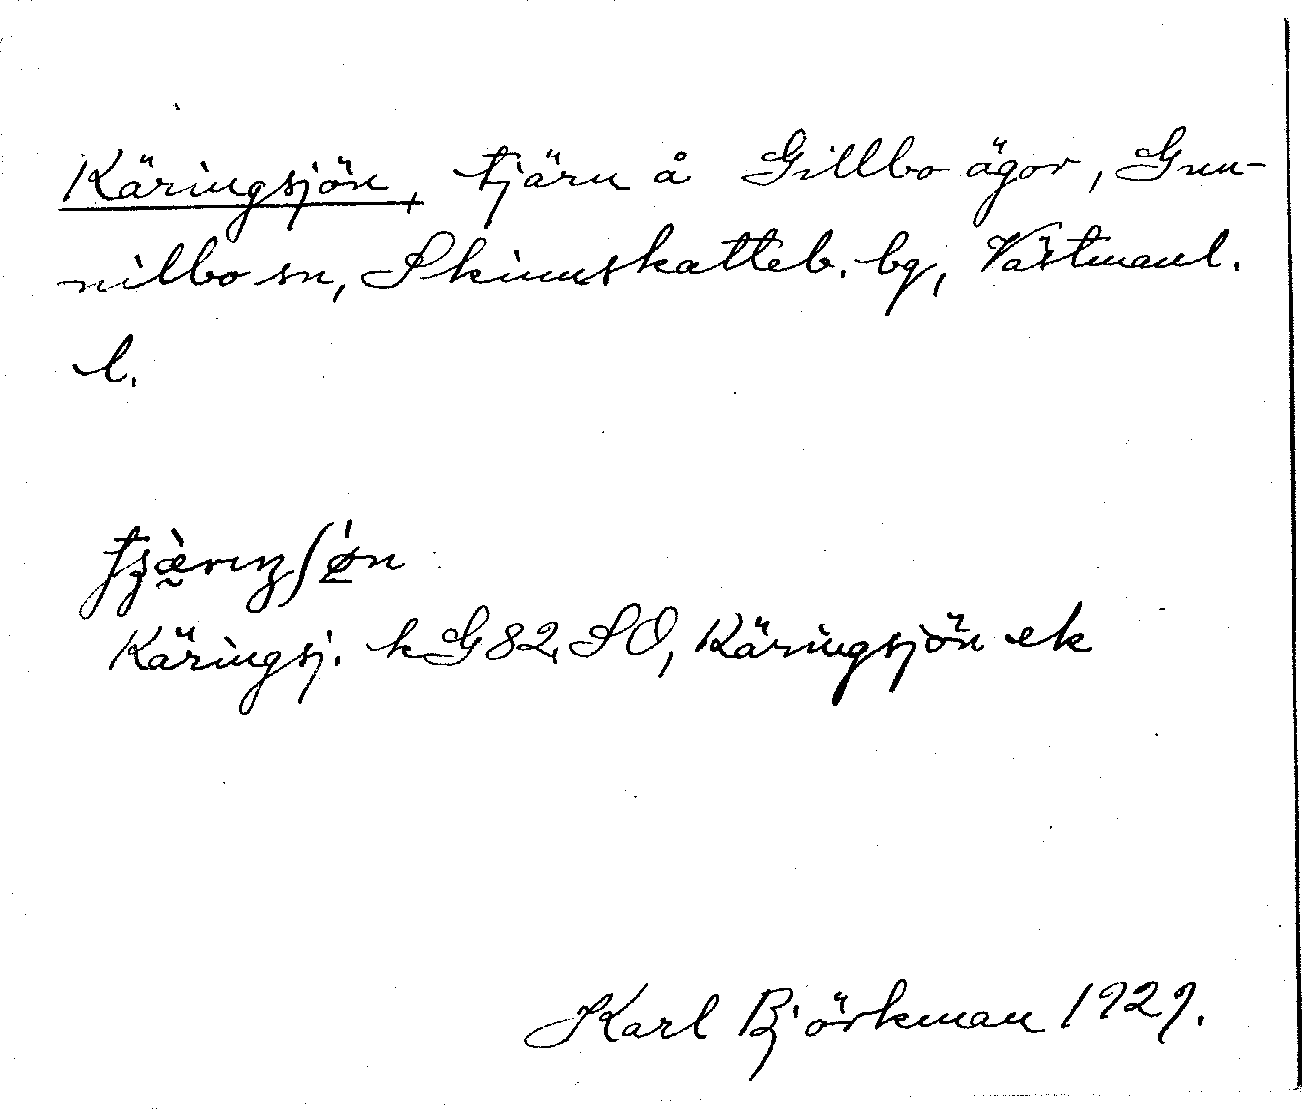 Käringsjön, tjärn å Gillbo ägor, Gun-
nilbo sn, Skinnskatteb. bg, Västmanl.
l.
Käringsj. kG82.SO, Käringsjön ek
Karl Björkman 1929.